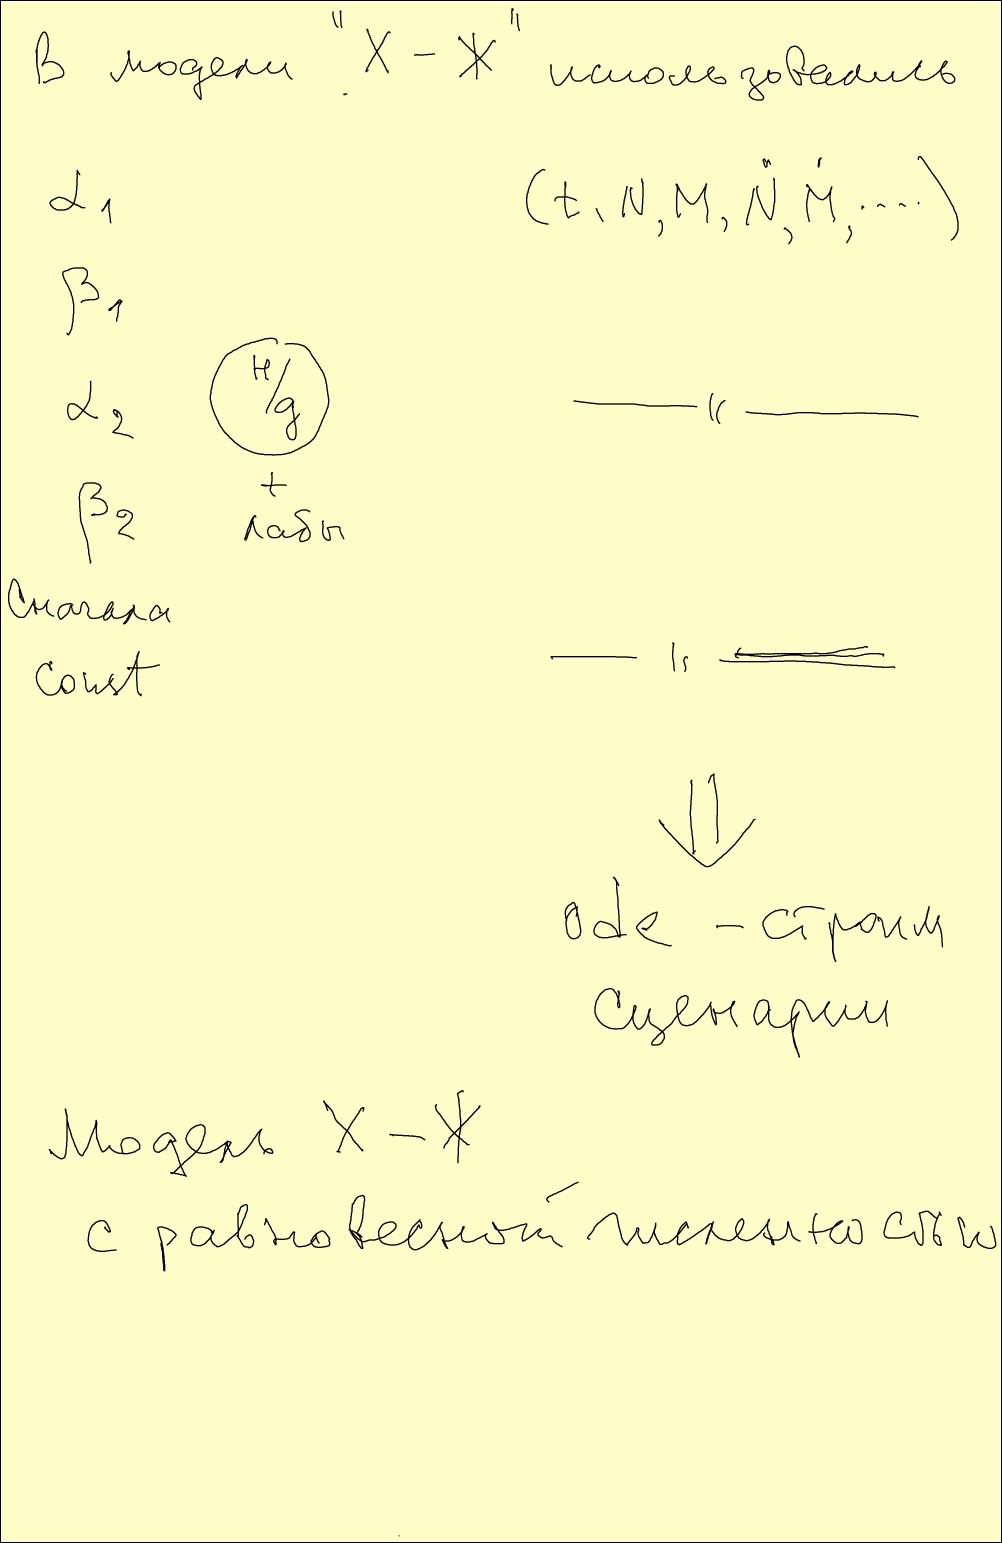 В модели "Х - Ж" использовались
α1 (t, N, M, N̈, Ṁ, ....)
β1
α2 н/д — " —
+
β2 лабы
Сначала
const — " —
⇓
ode - строим
сценарии
Модель Х - Ж
с равновесной численностью